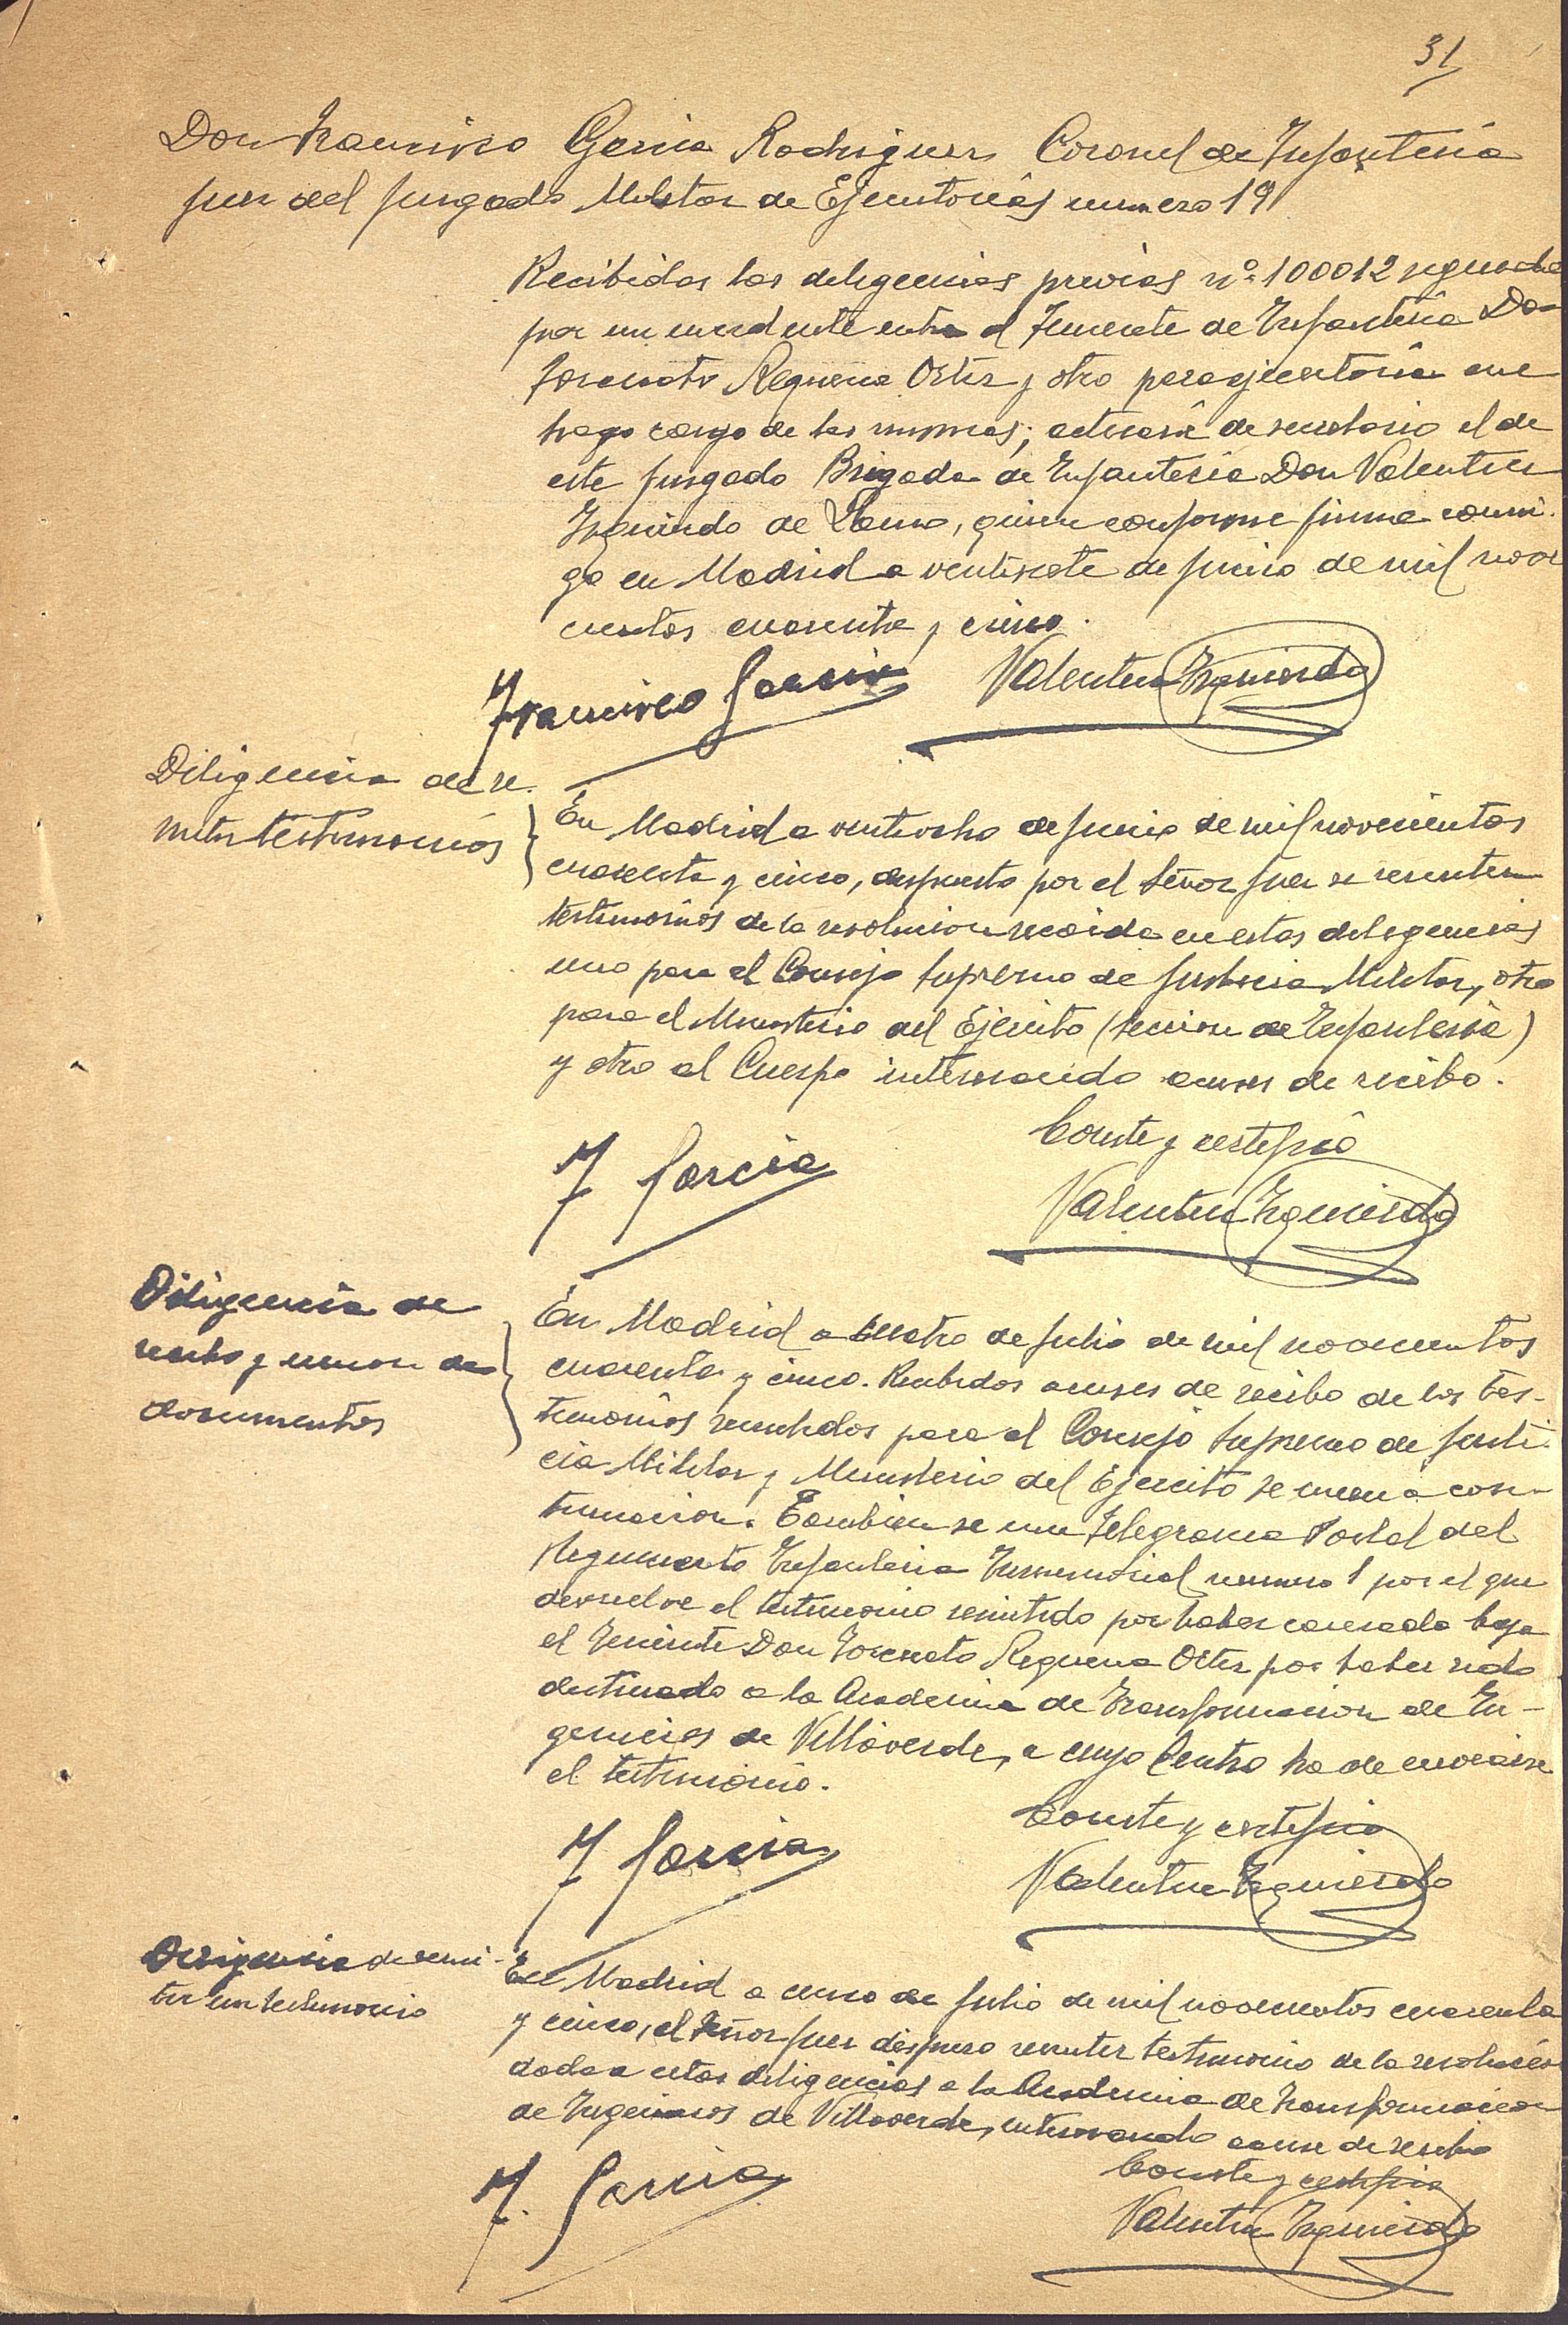 31
Don Francisco Garcia Rodriguez Coronel de Infanteria
Juez del Juzgado Militar de Ejecutorias numero 19
Recibidas las diligencias previas nº 100012 seguidas
por un incidente entre el Teniente de Infanteria Don
Torcuato Requena Ortiz y otro para ejecutoria me
hago cargo de las mismas; actuará de secretario el de
este Juzgado Brigada de Infanteria Don Valentin
Izquierdo de Llano, quien conforme firma conmi-
go en Madrid a ventisiete de Junio de mil nove
cientos cuarenta y cinco.
Francisco Garcia Valentin Izquierdo
Diligencia de re-
mitir testimonios
En Madrid a ventiocho de Junio de mil novecientos
cuarenta y cinco, dispuesto por el Señor Juez se remiten
testimonios de la resolucion recaida en estas diligencias
uno para el Consejo Supremo de Justicia Militar, otro
para el Ministerio del Ejercito (Seccion de Infanteria)
y otro al Cuerpo interesando acuses de recibo.
Conste y certifico
F Garcia Valentin Izquierdo
Diligencia de
recibo y union de
documentos
En Madrid a cuatro de Julio de mil novecientos
cuarenta y cinco. Recibidos acuses de recibo de los tes-
timonios remitidos para el Consejo Supremo de Justi-
cia Militar y Ministerio del Ejercito se unen a con-
tinuacion. Tambien se une Telegrama Postal del
Regimiento Infanteria Inmemorial numero 1 por el que
devuelve el testimonio remitido por haber causado baja
el Teniente Don Torcuato Requena Ortiz por haber sido
destinado a la Academia de Transformacion de In-
genieros de Villaverde, a cuyo Centro ha de enviarse
el testimonio.
Conste y certifico
F Garcia Valentin Izquierdo
Diligencia de remi-
tir un testimonio
En Madrid a cinco de Julio de mil novecientos cuarenta
y cinco, el Señor Juez dispuso remitir testimonio de la resolución
dada a estas diligencias a la Academia de Transformacion
de Ingenieros de Villaverde, interesando acuse de recibo
Conste y certifico
F. Garcia Valentin Izquierdo